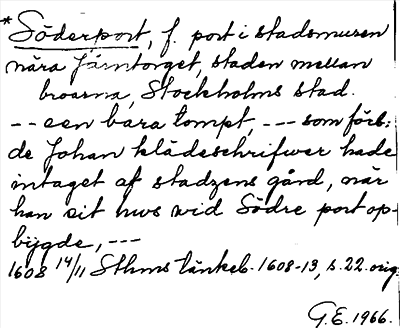 * Söderport, f. port i stadsmuren
nära Järntorget, staden mellan
broarna, Stockholms stad.
-- een bara tompt, --- som förb:
de Johan klädeschrifwer hade
intaget af stadzens gård, när
han sit hws wid Södre port op-
bijgde, ---
1608 14/11 Sthms tänkeb. 1608-13, s. 22. orig.
G.E. 1966.